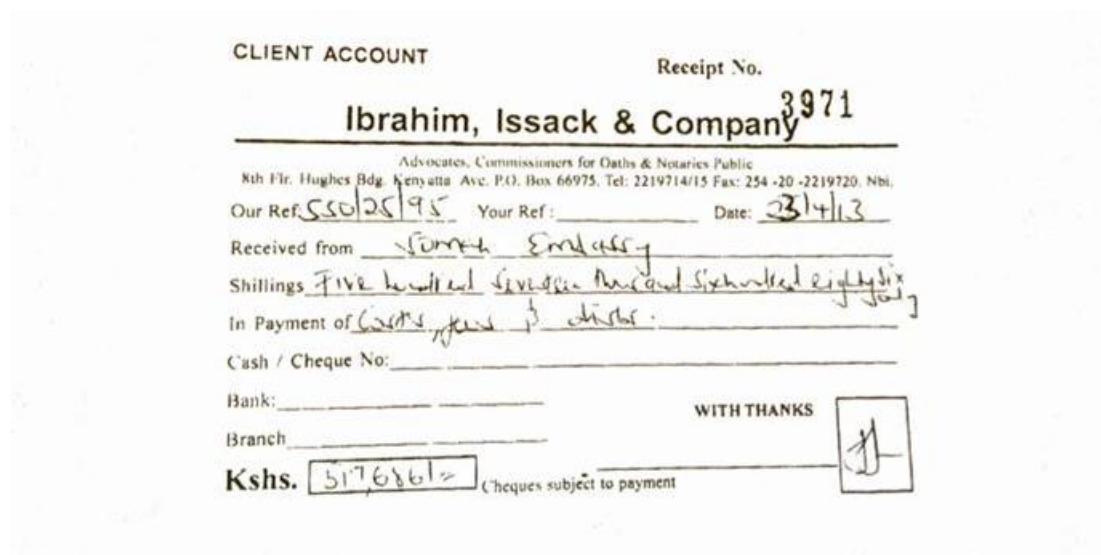 CLIENT ACCOUNT
Receipt No.
3971
Ibrahim, Issack & Company
Advocates, Commissioners for Oaths & Notaries Public
8th Flr. Hughes Bdg. Kenyatta Ave. P.O. Box 66975. Tel: 2219714/15 Fax: 254 -20 -2219720. Nbi.
Our Ref: SSO/25/95 Your Ref : Date: 23/4/13
Received from Embassy
Shillings Five hundred Seventeen thousand Six hundred eighty six
only
In Payment of Costs, fees & disbs.
Cash / Cheque No:
Bank:
WITH THANKS
Branch
Kshs. 517,686/=
Cheques subject to payment